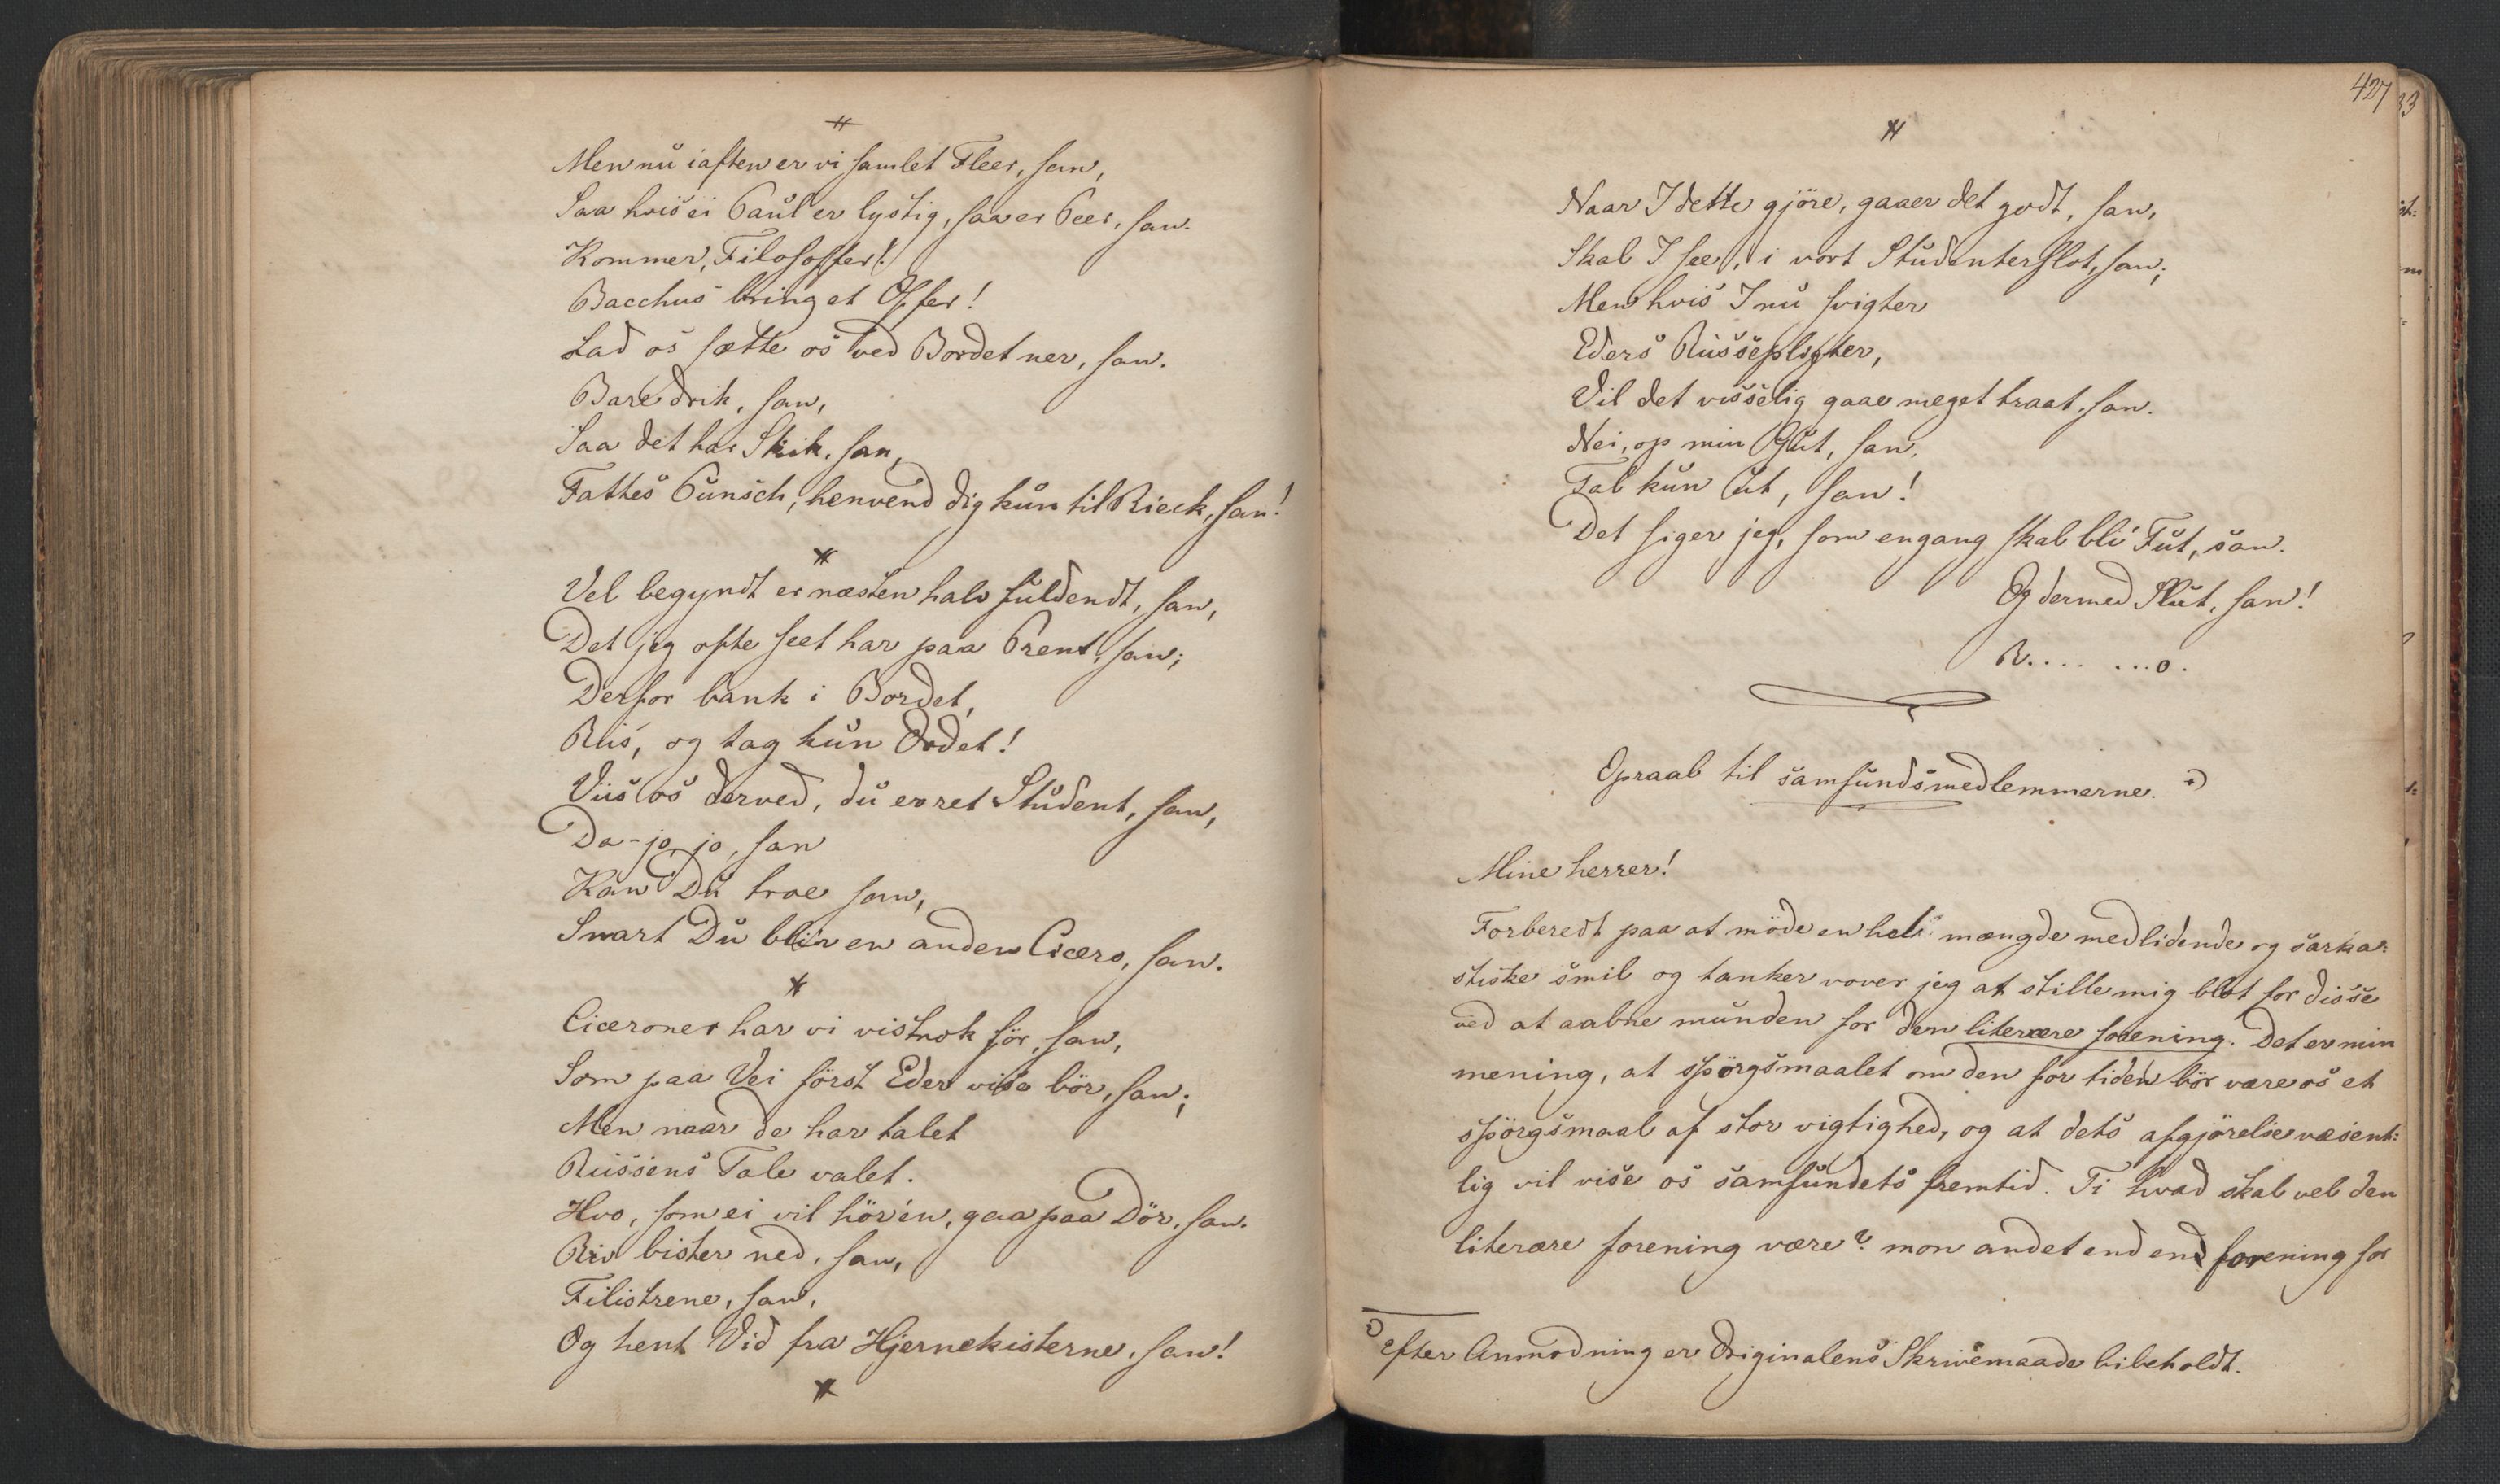 *
Men nu iaften er vi samlet Fleer, san,
Saa hvis ei Paul er lystig, saa er Peer, san.
Kommer, Filosoffer!
Bacchus bringet Offer!
Lad os sætte os ved Bordet ner, san.
Bare drik, san,
Saa det har Skik, san,
Fattes Punsch, henvend dig kun til Rieck, san!
*
Vel begyndt er næsten halv fuldendt, san,
Det jeg ofte seet har paa Prent, san;
Derfor bank i Bordet,
Rus, og tag kun Ordet!
Viis os derved, du er ret Student, san,
Da-jo, jo, san
Kan Du troe san,
Snart Du bli'r en anden Cicero, san.
*
Ciceroner har vi vistnok før, san,
Som paa Vei først Eder vise bør, san;
Men naar de har talet
Russens Tale valet.
Hvo, som ei vil hør'en, gaa paa Dör, san.
Riv bister ned, san,
Filistrene, san,
Og hent Vid fra Hjernekisterne, san!
*
427
33
*
Naar I dette gjöre, gaaer det godt, san,
Skal I see, i vort Studenterslot, san;
Men hvis I nu svigter
Eders Russepligter,
Vil det visselig gaae meget traat, san.
Nei, op min Gut, san,
Tal kun ut, san!
Det siger jeg, som engang skal bli Fut, san.
Og dermed Slut, san!
R.... ...o.
Opraab til samfundsmedlemmerne. *)
Mine herrer!
Forberedt paa at möde en hel mængde medlidende og sarka=
stiske smil og tanker vover jeg at stille mig blot for disse
ved at aabne munden for den literære forening. Det er min
mening, at spörgsmaalet om den for tiden bör være os et
spörgsmaal af stor vigtighed, og at dets afgjörelse væsent=
lig vil vise os samfundets fremtid. Ti hvad skal vel den
literære forening være? mon andet end en forening for
*) Efter Anmodning er Originalens Skrivemaade bibeholdt.